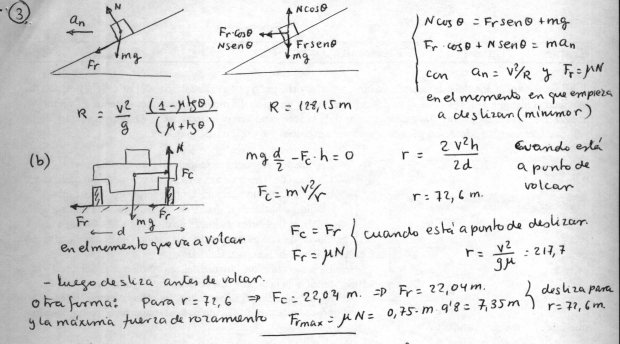 ③
N
an
Fr
mg
Ncosθ
Fr·cosθ
Nsenθ
Frsenθ
mg
Ncosθ = Frsenθ + mg
Fr·cosθ + Nsenθ = man
con an = v²/R y Fr = μN
en el momento en que empieza
a deslizar (mínimo r)
R = v²/g (1-μtgθ)/(μ+tgθ)
R = 128,15 m
(b)
N
Fc
Fr
d
mg
Fr
en el momento que va a volcar
mg d/2 - Fc·h = 0
Fc = m v²/r
r = 2v²h/2d
cuando está
a punto de
volcar
r = 72,6 m.
Fc = Fr
Fr = μN
cuando está a punto de deslizar.
r = v²/gμ = 217,7
- Luego desliza antes de volcar.
otra forma: Para r = 72,6 ⇒ Fc = 22,04 m. ⇒ Fr = 22,04 m.
y la máxima fuerza de rozamiento Frmax = μN = 0,75·m 9'8 = 7,35m
desliza para
r = 72,6m.